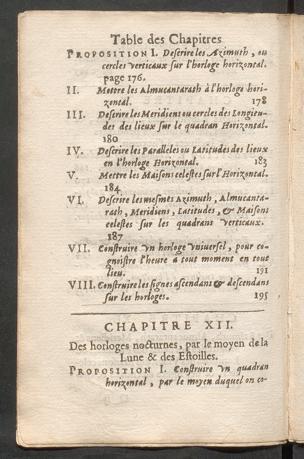 Table des Chapitres
PROPOSITION I. Descrire les Azimuth, ou
cercles verticaux sur l'horloge horizontal.
page 176.
II. Mettre les Almucantarath à l'horloge hori-
zontal. 178
III. Descrire les Meridiens ou cercles des Longitu-
des des lieux sur le quadran Horizontal.
180
IV. Descrire les Paralleles ou Latitudes des lieux
en l'horloge Horizontal. 183
V. Mettre les Maisons celestes sur l'Horizontal.
184
VI. Descrire les mesmes Azimuth, Almucanta-
rath, Meridiens, Latitudes, & Maisons
celestes sur les quadrans verticaux.
187
VII. Construire vn horloge vniuersel, pour co-
gnoistre l'heure a tout moment en tout
lieu. 191
VIII. Construire les signes ascendans & descendans
sur les horloges. 195
CHAPITRE XII.
Des horloges nocturnes, par le moyen de la
Lune & des Estoilles.
PROPOSITION I. Construire vn quadran
horizontal, par le moyen duquel on co-